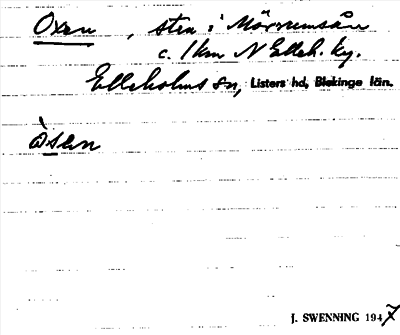 Oxen, sten i Mörrumsån
c. 1 km N Elleh. ky.
Elleholms sn, Listers hd, Blekinge län.
òsen
J. SWENNING 1947